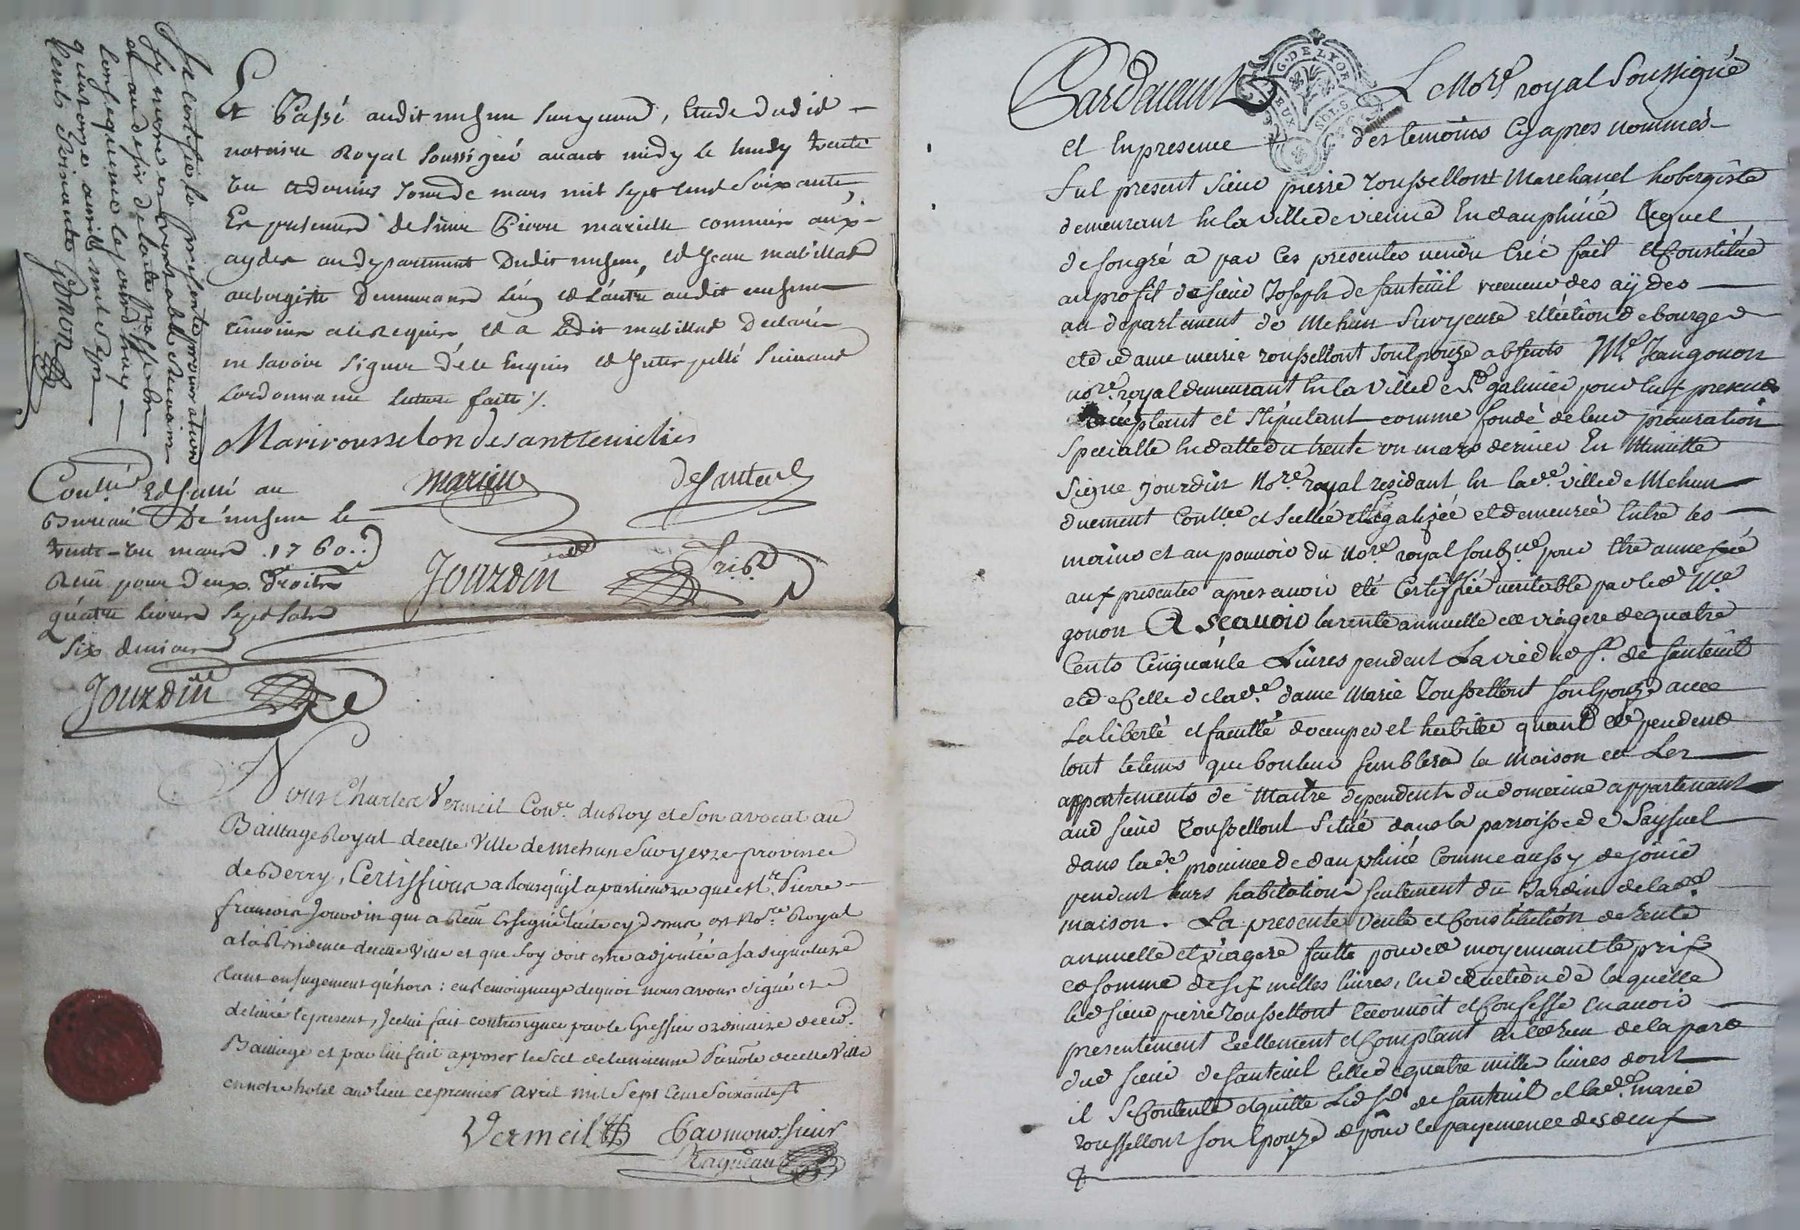 Je certifie la presente procuration
sy mene en veritable
et au desir de laste passé
consequence ce jourdhuy
quatorze avril mil sept
cents soixante Gonon
Et Passé audit mehun sur yeuvre, Etude dudit
notaire Royal soussigné avant midy le lundy trente
un et dernier jour de mars mil sept cent soixante,
En presence de sieur Pierre mariette commis aux
aydes au departement dudit mehun, et Jean mabillat
aubergiste demeurans l'un et l'autre audit mehun
temoins a ce Requis et a ledit mabillat declaré
ne savoir signer de ce Enquis et Interpellé suivant
Lordonnance lecture faitte /.
Marirousselon desantteuielies
mariette desanteuil
Jourdin nore Rl
Conlé Et scellé au
Bureau De mehun le
trente-un mars 1760..
Receu pour deux Droits
quatre livres sept sols
six deniers
Jourdin
Nous Charles Vermeil Coner. du Roy et son avocat au
Bailliage Royal de cette Ville de mehun Sur yevre province
de Berry, Certiffions a tous qu'il apartiendra que Me. Pierre
francois Jourdin qui a Receu et signé l'acte cy dessus est Nore. Royal
a la Residence de cette Ville et que foy doit etre adjoutée a sa signature
tant en jugement qu'hors : en temoignage de quoi nous avons signé et
delivré le present, Icelui fait contresigner par le Greffier ordinaire dece d.
Bailliage et par lui fait apposer le scel de l'ancienne Prévôté de cette Ville
en notre hotel aud lieu ce premier Avril mil Sept Cent Soixante /.
Vermeil Par mond. sieur
Ragueau
G. DE LYON
DEUX SOLS
Pardevant Le Nore. royal Soussigné
et En presence des temoins Cy apres nommés
fut present sieur pierre rousselont Marchand hobergiste
demeurant En la ville de vienne En dauphiné Lequel
de son gré a par Ces presentes vendu Créé fait et Constitué
au profit de sieur Joseph de santeüil receveur des aÿdes
au departement de Mehun sur yeuvre ellection de bourges
et de dame marie rousselont son Epouze absents Me. Jean gonon
nore. royal demeurant En la Ville de St. galmier pour Eux present
acceptant et stipulant comme fondé de leur procuration
specialle En datte du trente un mars dernier En Minutte
signé jourdin Nore. royal residant En lade. ville de Mehun
duement Conllée et scellée et légalizée et demeurée Entre les
mains et au pouvoir du Nore. royal soubsné. pour Etre annexée
aux presentes apres avoir été Certiffiée veritable par led. Me
gonon A sçavoir la rente annuelle et viagere de quatre
Cents Cinquante Livres pendent La vie dud Sr. de santeüil
et de Celle de lade. dame Marie rousselont son Epouze avec
La liberté et faculté d'occuper et habiter quand et pendent
tout le tems que bon leur semblera la maison et Les
appartements de Maitre dependents du domaine appartenant
aud sieur rousselont situé dans la parroisse de Seyssuel
dans lade. province de dauphiné Comme aussy de joüir
pendent leurs habitation seulement du Jardin de lade.
maison. La presente Vente et Constitution de rente
annuelle et viagere faitte pour et moyennant le prix
et somme de six milles livres, En deduction de laquelle
led sieur pierre rousselont reconnoit et Confesse En avoir
presentement reellement et Comptant En recu de la part
dud sieur de santeuil Celle de quatre mille livres dont
il se Contente et quitte Led Sr. de santeüil et lade. marie
rousselont son Epouze et pour le payement des deux